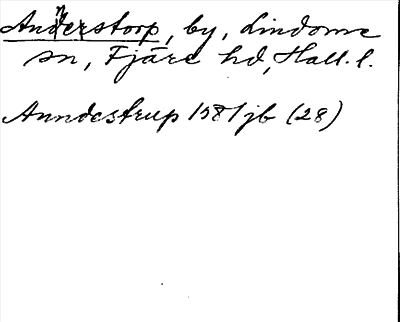 Annerstorp, by, Lindome
sn, Fjäre hd, Hall. l.
Anndestrup 1581 jb (28)